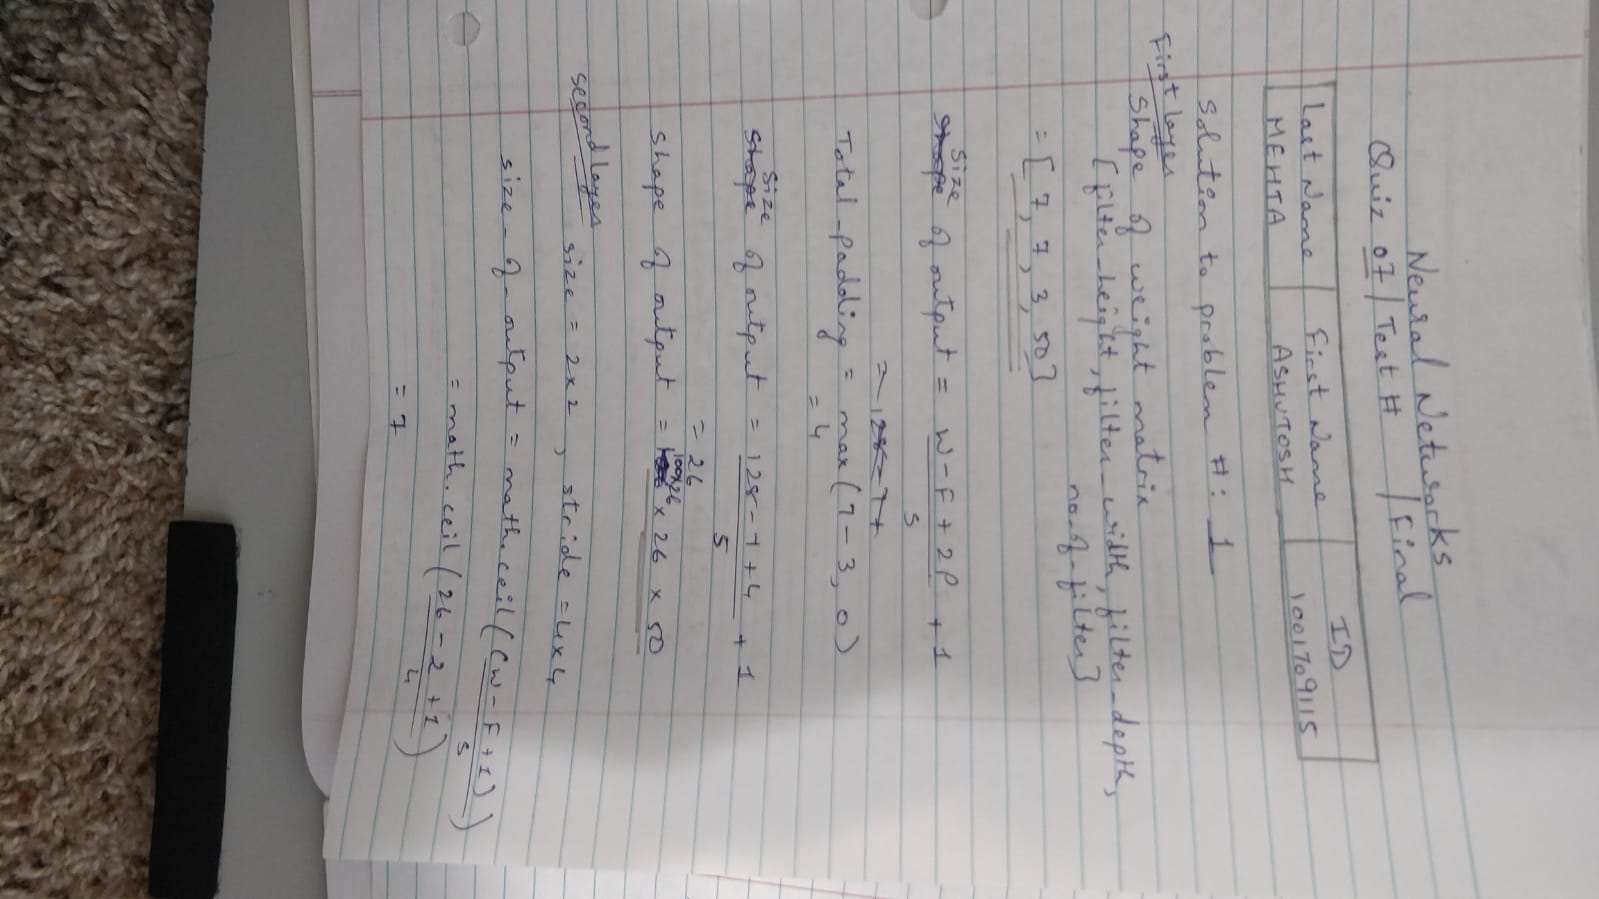 Neural Networks
Quiz 07 / Test # / Final
Last Name First Name ID
MEHTA ASHUTOSH 1001709115
Solution to problem #: 1
First layer
Shape of weight matrix
[filter_height, filter_width, filter_depth,
no_of_filter]
= [7, 7, 3, 50]
Size
shape of output = W-F+2P/S + 1
= 128-7+
Total-padding = max(7-3, 0)
= 4
Size
shape of output = 128-7+4/5 + 1
= 26
100x26
shape of output = x 26 x 50
second layer
size = 2x2, stride = 4x4
size-of-output = math.ceil((W-F+1)/S)
= math.ceil(26-2+1/4)
= 7